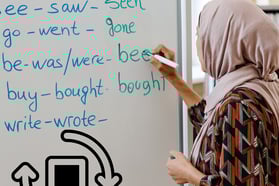 see - saw - seen
go - went - gone
be - was/were - been
buy - bought - bought
write - wrote -